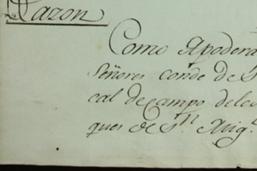 Razon
Como Apodera
Señores conde de S
cal de campo de los
ques de Sn Mig.